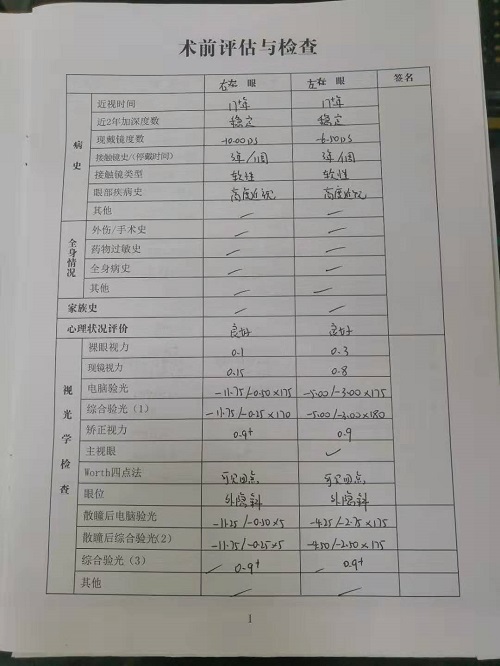 术前评估与检查
右左 眼 左右 眼 签名
病史
近视时间 17+年 17+年
近2年加深度数 稳定 稳定
现戴镜度数 -10.00DS -6.50DS
接触镜史/(停戴时间)
接触镜类型 软性 软性
眼部疾病史 高度近视 高度近视
其他 / /
全身情况
外伤/手术史 / /
药物过敏史 / /
全身病史 / /
其他 / /
家族史 / /
心理状况评价 良好 良好
视光学检查
裸眼视力 0.1 0.3
现镜视力 0.15 0.8
电脑验光 -11.75/-0.50×175 -5.00/-3.00×175
综合验光(1) -11.75/-0.25×170 -5.00/-3.00×180
矫正视力 0.9+ 0.9
主视眼 ✓
Worth四点法 可见四点 可见四点
眼位 外隐斜 外隐斜
散瞳后电脑验光 -11.25/-0.50×5 -4.25/-2.75×175
散瞳后综合验光(2) -11.75/-0.25×5 -4.50/-2.50×175
综合验光(3) / 0.9+ / 0.9+
其他 / /
1